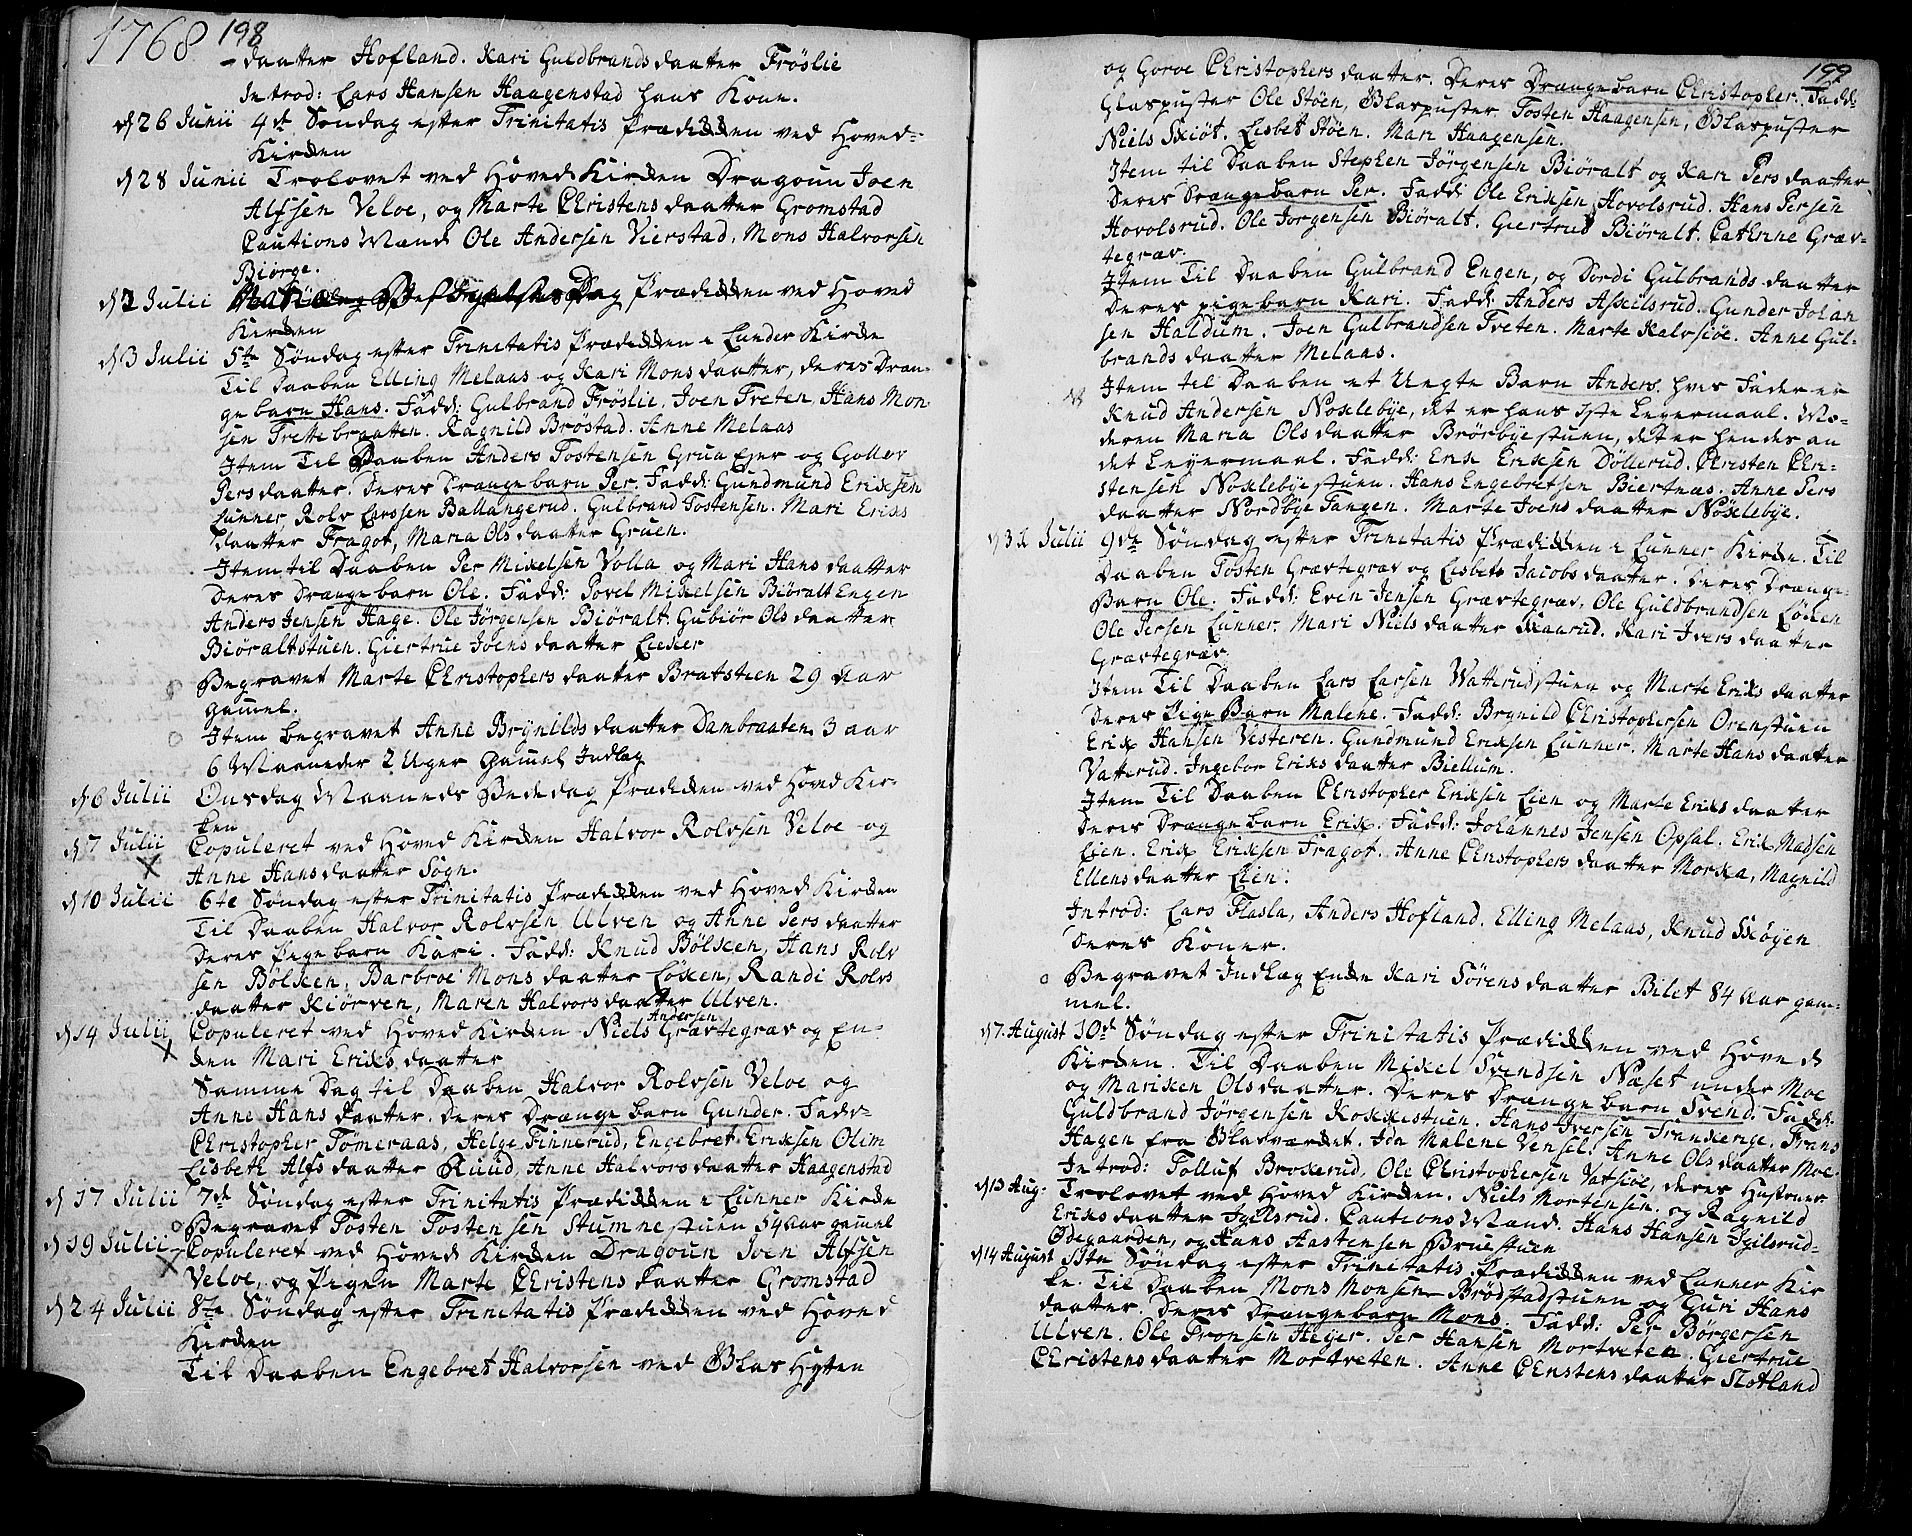 1768
198
-daatter Hofland. Kari Guldbrandsdaatter Frøslie
Introd: Lars Hansen Haagenstad hans Kone.
d 26 Junii 4de Søndag efter Trinitatis Prædikken ved Hoved-
Kirken
d 28 Junii Trolovet ved Hoved Kirken Dragoun Joen
Alfsen Veloe, og Marte Christensdaatter Gromstad
Cautions Mænd Ole Andersen Vierstad, Mons Halvorsen
Biørge.
d 2 Julii Prædikken ved Hoved
Kirken
d 3 Julii 5te Søndag efter Trinitatis Prædikken i Lunder Kirke
Til Daaben Elling Melaas og Kari Monsdaatter, deres Dræn-
gebarn Hans. Fadd: Gulbrand Frøslie, Joen Tveten, Hans Mon-
sen Trettebraatten. Ragnild Brøstad. Anne Melaas
Item Til Daaben Anders Tostensen Grua Ejer og Gollov
Persdaatter. Deres Drængebarn Per. Fadd: Gundmund Erixsen
Lunner, Rolv Larssen Ballangerud. Gulbrand Tostensen. Mari Erixs
daatter Fragot, Maria Olsdaatter Gruen.
Item til Daaben Per Mixelsen Volla og Mari Hansdaatter
Deres Drængebarn Ole. Fadd: Povel Mixelsen Biøralt Engen
Anders Jensen Hage. Ole Jørgensen Biøralt. Gubiør Olsdaatter
Biøraltstuen. Giertrue Joensdaatter Liexer
Begravet Marte Christophersdaatter Bratstien 29 Aar
gammel.
Item begravet Anne Brynildsdaatter Dambraaten 3 aar
6 Maaneder 2 Uger Gammel Indlag
d 6 Julii Onsdag Maaneds Bededag Prædikken ved Hoved Kir-
ken
d 7 Julii Copuleret ved Hoved Kirken Halvor Rolvsen Veloe og
X Anne Hansdaatter Sogn.
d 10 Julii 6te Søndag efter Trinitatis Prædikken ved Hoved Kirken
Til Daaben Halvor Rolvsen Ulven og Anne Persdaatter
Deres Pigebarn Kari. Fadd: Knud Bølxen, Hans Rolv
sen Bølxen, Barbroe Monsdaatter Løxen, Randi Rolvs
daatter Kiørven, Maren Halvorsdaatter Ulven.
d 14 Julii Copuleret ved Hoved Kirken Niels Andersen Grævtegrav og En-
X ken Mari Erixsdaatter
Samme Dag til Daaben Halvor Rolvsen Veloe og
Anne Hansdaatter. Deres Drængebarn Gunder. Fadd-
Christopher Tømeraas, Helge Finnerud, Engebret Erixsen Olim
Lisbeth Alfsdaatter Ruud, Anne Halvorsdaatter Haagenstad
d 17 Julii 7de Søndag efter Trinitatis Prædikken i Lunner Kirke
Begravet Tosten Tostensen Stumnestuen 54 aar gammel
d 19 Julii Copuleret ved Hoved Kirken Dragoun Joen Alfsen
X Veloe, og Pigen Marte Christensdaatter Gromstad
d 24 Julii 8te Søndag efter Trinitatis Prædikken ved Hoved
Kirken
Til Daaben Engebret Halvorsen ved Glas Hytten
199
og Goroe Christophersdaatter. Deres Drængebarn Christopher. Fadd:
Glaspuster Ole Støen, Glaspuster Tosten Haagensen, Glaspuster
Niels Skiøt. Lisbet Støen. Mari Haagensen.
Item til Daaben Stephen Jørgensen Biøralt og Kari Persdaatter
Deres Drængebarn Per. Fadd: Ole Erixsen Hovolsrud. Hans Persen
Hovolsrud. Ole Jørgensen Biøralt. Giertrud Biøralt. Cathrine Græv-
tegrav.
Item Til Daaben Gulbrand Engen, og Dordi Gulbrandsdaatter
Deres pigebarn Kari. Fadd: Anders Asxilsrud. Gunder Johan
sen Haldum. Joen Gulbrandsen Tveten. Marte Kalvsiøe. Anne Gul-
brandsdaatter Melaas.
Item til Daaben et Uegte Barn Anders. hvis Fader er
Knud Andersen Noxlebye, det er hans 1ste Leyermaal. Mo-
deren Maria Olsdaatter Brørbyestuen, det er hendes an
det Leyermaal. Fadd: Erix Erixsen Døllerud. Christen Chri-
stensen Noxlebyestuen. Hans Engebretsen Biertnæs. Anne Pers
daatter Nordbye Tangen. Marte Joensdaatter Nøxlebye.
d 31 Julii 9de Søndag efter Trinitatis Prædikken i Lunner Kirke. Til
Daaben Tosten Grævtegrav og Lisbet Jacobsdaater. Deres Drænge-
Barn Ole. Fadd: Even Jensen Grævtegrav, Ole Guldbrandsen Løken
Ole Persen Lunner. Mari Nielsdaatter Skaarud. Kari Iversdaatter
Grævtegrav.
Item Til Daaben Lars Larsen Vatterudstuen og Marte Erixsdaatter
Deres Pige Barn Malene. Fadd: Brynild Christophersen Orenstuen
Erix Hansen Vesteren. Gundmund Erixsen Lunner. Marte Hansdaatter
Vatterud. Ingebor Erixsdaatter Biellum.
Item Til Daaben Christopher Erixsen Lien og Marte Erixsdaatter
Deres Drængebarn Erix. Fadd: Johannes Jensen Opsal. Erix Madsen
Lien. Erix Erixsen Fragot. Anne Christophersdaatter Morxa, Magnild
Ellensdaatter Lien.
Introd: Lars Flasla, Anders Hofland. Elling Melaas, Knud Skøyen
Deres Koner.
Begravet Indlag Enke Kari Sørensdaatter Bilet 84 Aar gam-
mel.
d 7. August 10de Søndag efter Trinitatis Prædikken ved Hoved
Kirken. Til Daaben Mixel Svendsen Næset under Moe
og Marixen Olsdaatter. Deres Drængebarn Svend. Fadd:
Guldbrand Jørgensen Roxxestuen. Hans Iversen Tranxerige. Frans
Hagen fra Glasværket. Ida Malene Vensel. Anne Olsdaatter Moe.
Introd: Tolluf Broxerud, Ole Christophersen Vatsiøe, deres Hustruer
d 13 Aug. Trolovet ved Hoved Kirken. Niels Mortensen. og Ragnild
Erixsdaatter Igelsrud. Cautions Mænd. Hans Hansen Igilsrud-
Ødegaarden, og Hans Aastensen Bruestuen
d 14 August 11te Søndag efter Trinitatis Prædikken ved Lunner Kir
ke. Til Daaben Mons Monsen Brødstadstuen og Guri Hans
daatter. Deres Drængebarn Mons. Fadd: Per Børgersen
Ulven. Ole Tronsen Heyer. Per Hansen Mortveten. Giertrue
Christensdaatter Mortveten. Anne Christensdaatter Slotland